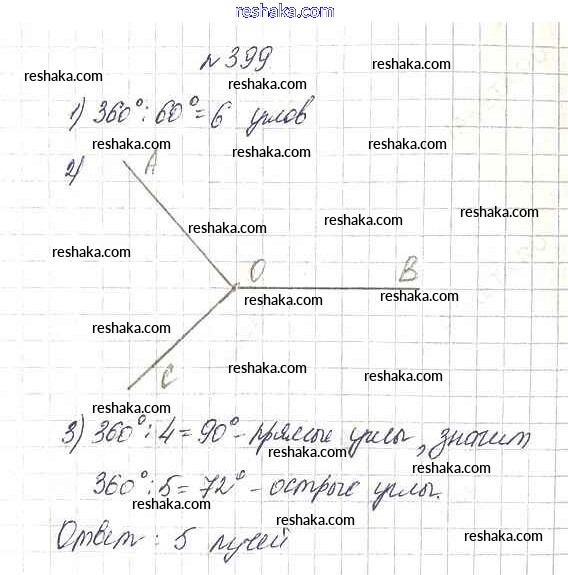 reshaka.com
№399
reshaka.com reshaka.com reshaka.com
1) 360°:60°=6 углов
reshaka.com reshaka.com reshaka.com
2)
A
reshaka.com reshaka.com reshaka.com
reshaka.com
O B
reshaka.com reshaka.com
reshaka.com
C
reshaka.com reshaka.com
reshaka.com
3) 360°:4=90°-прямые углы, значит
reshaka.com reshaka.com
360°:5=72°-острые углы.
reshaka.com reshaka.com
Ответ: 5 лучей
reshaka.com